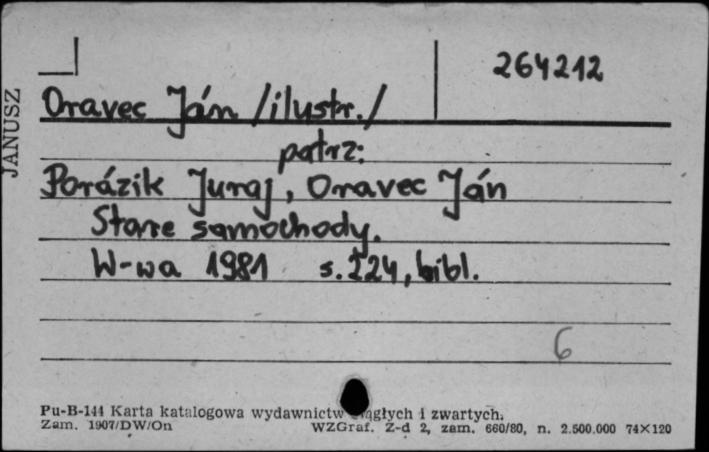 264212
Oravec Ján /ilustr./
patrz:
Porázik Juraj, Oravec Ján
Stare samochody.
W-wa 1981 s. 224, bibl.
6
JANUSZ
Pu-B-144 Karta katalogowa wydawnictw ciągłych i zwartych.
Zam. 1907/DW/On WZGraf. Z-d 2, zam. 660/80, n. 2.500.000 74X120